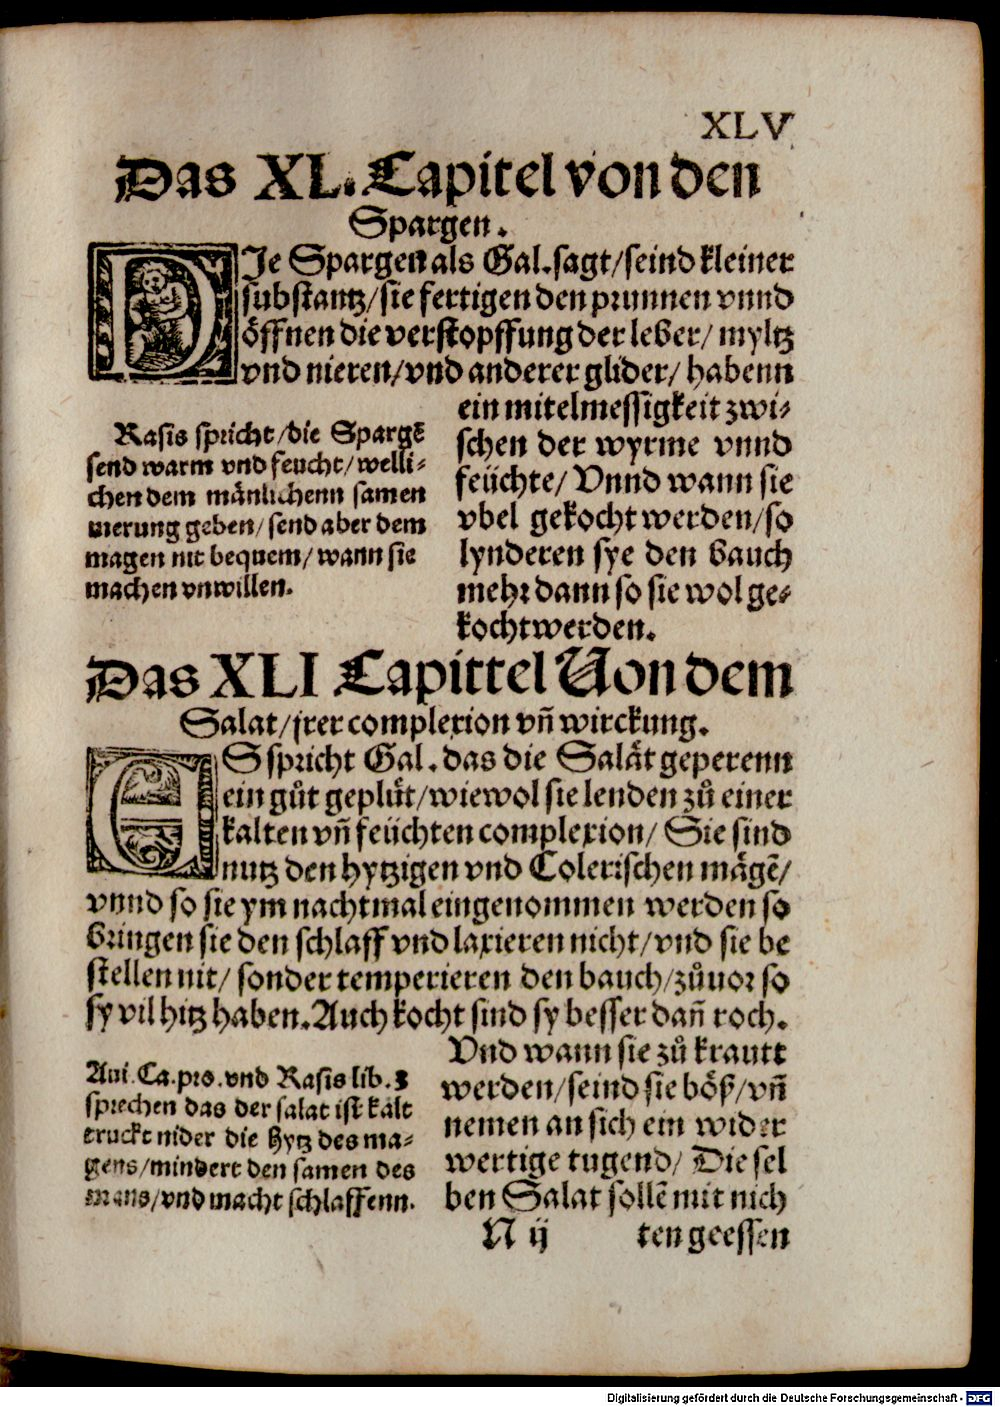 XLV
Das XL. Capitel von den
Spargen.
DIe Spargen als Gal. sagt/ seind kleiner
substantz/ sie fertigen den prunnen vnnd
öffnen die verstopffung der leber/ myltz
vnd nieren/ vnd anderer glider/ habenn
ein mitelmessigkeit zwi-
schen der wyrme vnnd
feüchte/ Vnnd wann sie
vbel gekocht werden/ so
lynderen sye den bauch
mehr dann so sie wol ge-
kocht werden.
Rasis spricht/ die Spargē
send warm vnd feucht/ welli-
chen dem mänlichenn samen
merung geben/ send aber dem
magen nit bequem/ wann sie
machen vnwillen.
Das XLI Capittel Von dem
Salat/ jrer complexion vñ wirckung.
ES spricht Gal. das die Salåt geperenn
ein gůt geplůt/ wiewol sie lenden zů einer
kalten vñ feüchten complexion/ Sie sind
nutz den hytzigen vnd Colerischen mågē/
vnnd so sie ym nachtmal eingenommen werden so
bringen sie den schlaff vnd laxieren nicht/ vnd sie be
stellen nit/ sonder temperieren den bauch/ zůuor so
sy vil hitz haben. Auch kocht sind sy besser dañ roch.
Vnd wann sie zů krautt
werden/ seind sie böß/ vñ
nemen an sich ein wider
wertige tugend/ Die sel
ben Salat sollē mit nich
Aui. Ca. pro. vnd Rasis lib. 3
sprechen das der salat ist kalt
truckt nider die hytz des ma-
gens/ mindert den samen des
mans/ vnd macht schlaffenn.
N ij ten geessen
Digitalisierung gefördert durch die Deutsche Forschungsgemeinschaft - DFG